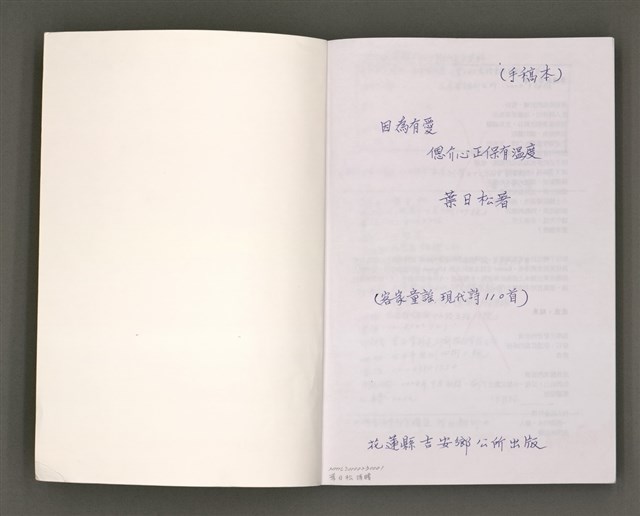 (手稿本)
因為有愛
偲介心正保有溫度
葉日松著
(客家童謠 現代詩110首)
花蓮縣吉安鄉公所出版
葉日松 捐贈